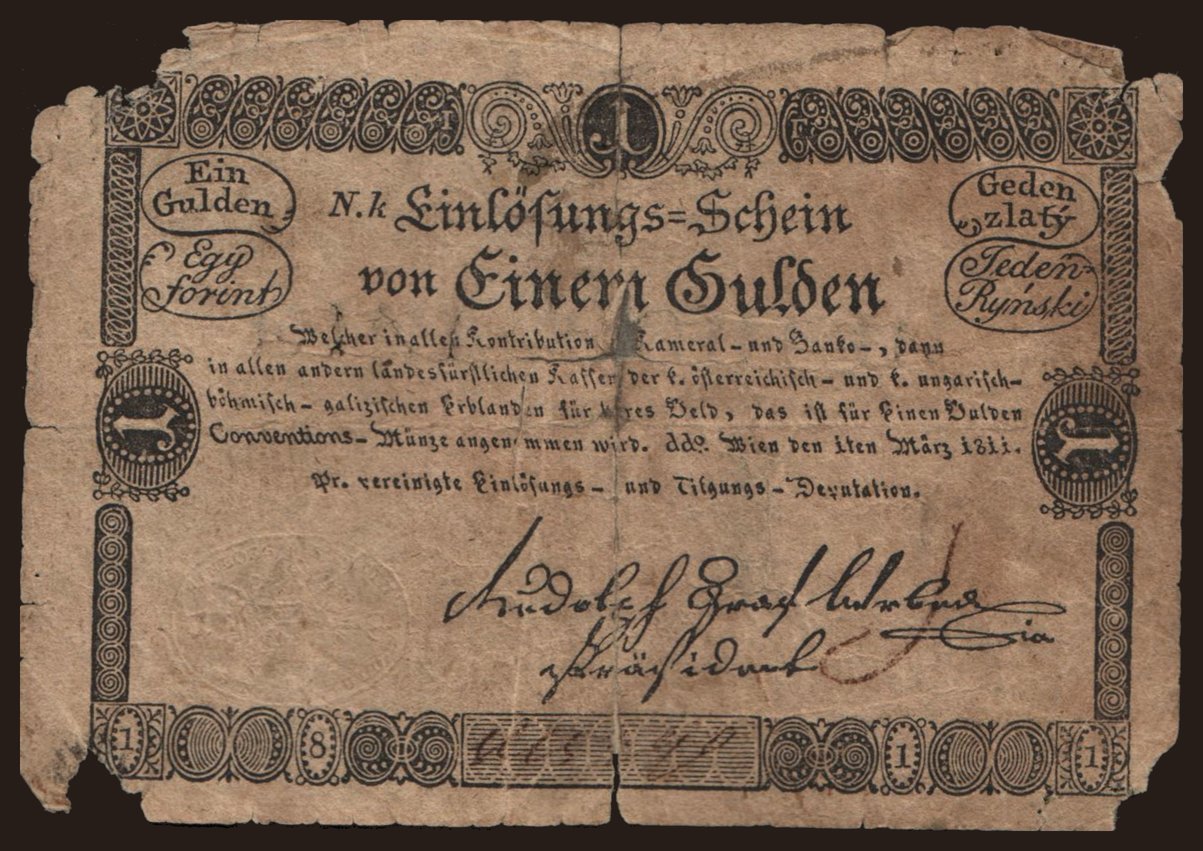 1
Ein
Gulden
Egy
forint
N.k Einlösungs=Schein
von Einem Gulden
Geden
zlatý
Jeden
Ryński
Welcher in allen Kontribution Kameral- und Banko-, dann
in allen andern ländesfürstlichen Kassen der k. österreichisch- und k. ungarisch-
böhmisch- galizischen Erblanden für bares Geld, das ist für Einen Gulden
Conventions-Münze angenommen wird. ddo. Wien den 1ten März 1811.
Pr. vereinigte Einlösungs- und Tilgungs-Deputation.
1
1
Rudolph Graf Wrbna
Präsident
1 8 1 1